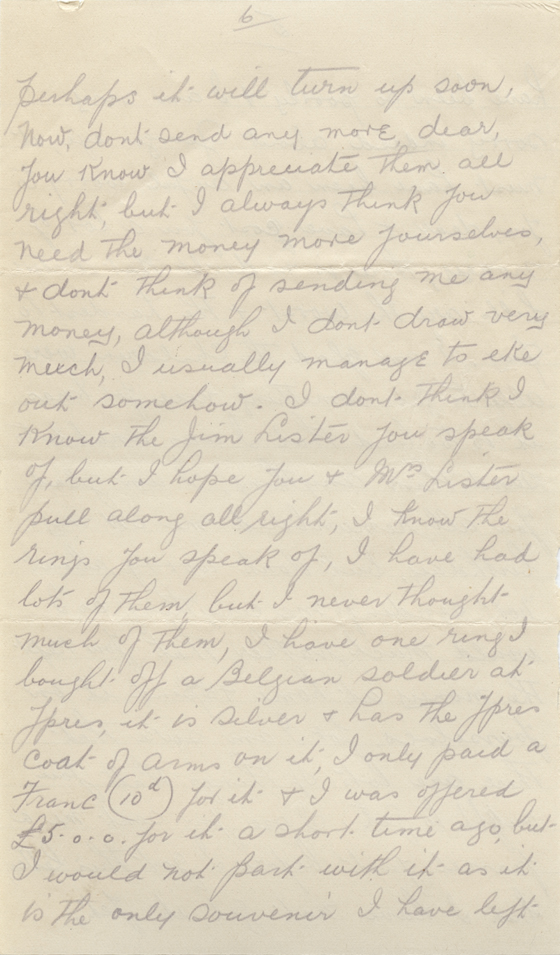 6
perhaps it will turn up soon,
Now, dont send any more dear,
you know I appreciate them all
right, but I always think you
need the money more yourselves,
& dont think of sending me any
money, although I dont draw very
much, I usually manage to eke
out somehow. I dont think I
know the Jim Lister you speak
of, but I hope you & Mrs Lister
pull along all right, I know the
rings you speak of, I have had
lots of them, but I never thought
much of them, I have one ring I
bought off a Belgian soldier at
Ypres, it is silver & has the Ypres
coat of arms on it, I only paid a
Franc (10d) for it & I was offered
£5.0.0. for it a short time ago, but
I would not part with it as it
is the only souvenir I have left